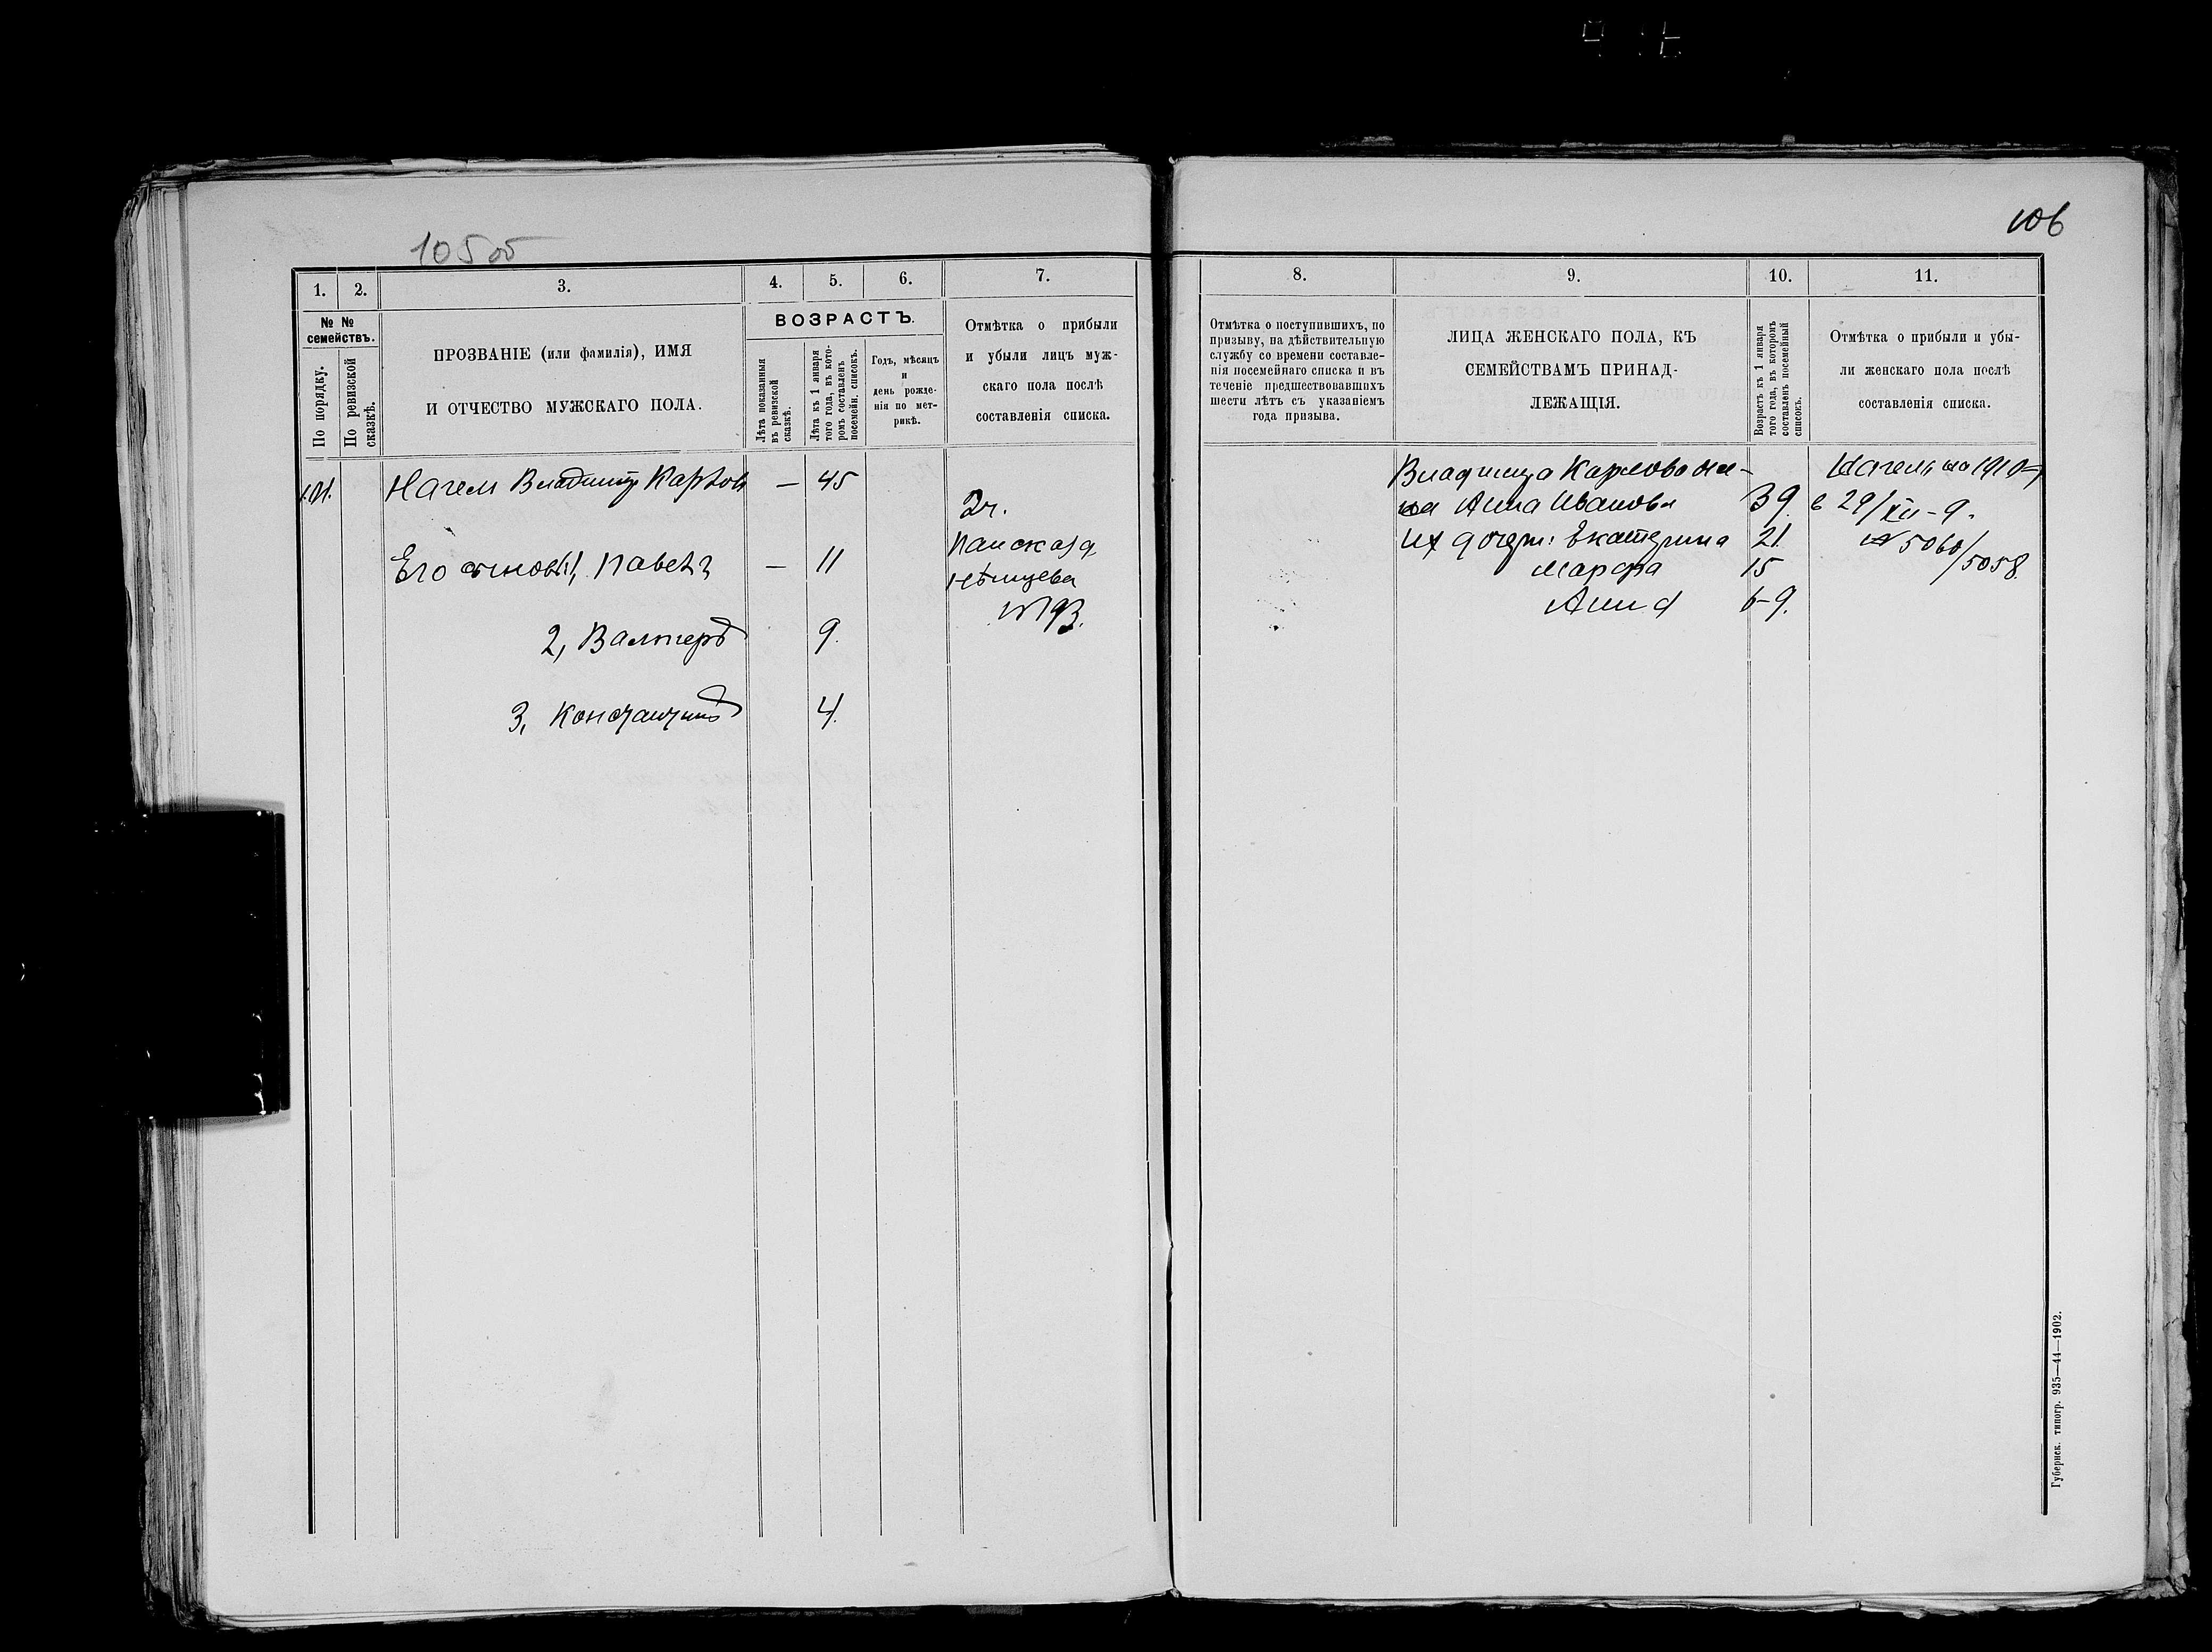 105 об
106
1.
2.
3.
4.
5.
6.
7.
8.
9.
10.
11.
№ №
семействъ.
По порядку.
По ревизской
сказкѣ.
ПРОЗВАНІЕ (или фамилія), ИМЯ
И ОТЧЕСТВО МУЖСКАГО ПОЛА.
ВОЗРАСТЪ.
Лѣта показанныя
въ ревизской
сказкѣ.
Лѣта къ 1 января
того года, въ кото-
ромъ составленъ
посемейн. списокъ.
Годъ, мѣсяцъ
и
день рожде-
нія по мет-
рикѣ.
Отмѣтка о прибыли
и убыли лицъ муж-
скаго пола послѣ
составленія списка.
Отмѣтка о поступившихъ, по
призыву, на дѣйствительную
службу со времени составле-
нія посемейнаго списка и въ
теченіе предшествовавшихъ
шести лѣтъ съ указаніемъ
года призыва.
ЛИЦА ЖЕНСКАГО ПОЛА, КЪ
СЕМЕЙСТВАМЪ ПРИНАД-
ЛЕЖАЩІЯ.
Возрастъ къ 1 января
того года, въ которомъ
составленъ посемейный
списокъ.
Отмѣтка о прибыли и убы-
ли женскаго пола послѣ
составленія списка.
Нагель Владимір Карлов — 45
2 ч.
Панская
Нѣмцева
№ 93.
Его сыновья 1, Павелъ — 11
2, Валтеръ 9.
3, Константинъ 4.
Владимира Карлова же-
на Анна Иванова 39.
Их дочери: Екатерина 21.
Марфа 15
Анна 6-9.
на 1910
29/XII-9.
№ 5060/5058
Губернск. типогр. 935—44—1902.